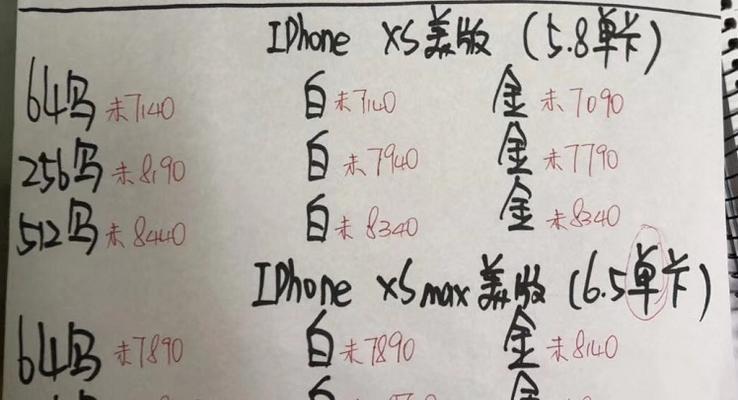 IPhone XS美版 (5.8单卡)
64乌 未7140 白 未7140 金 未7090
256乌 未8190 白 未7940 金 未7790
512乌 未8440 白 未8340 金 未8340
IPhone XSmax美版 (6.5单卡)
64乌 未7890 白 未7890 金 未8140
白 金